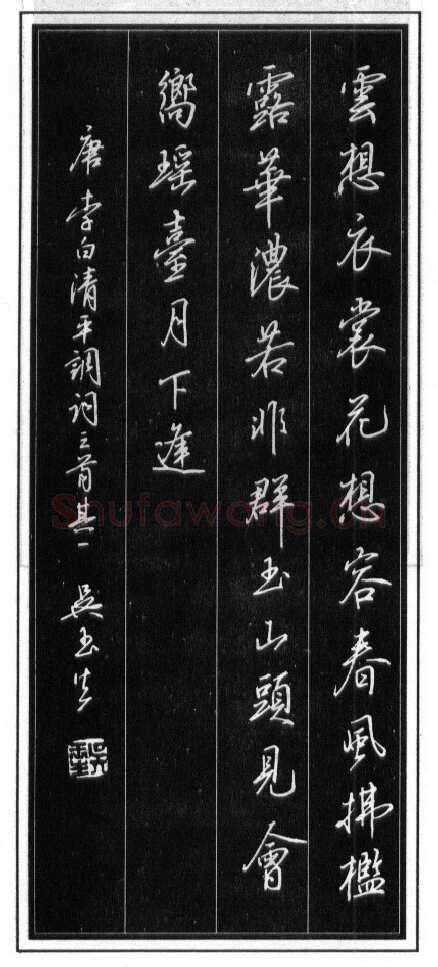 雲想衣裳花想容春風拂檻
露華濃若非群玉山頭見會
嚮瑶臺月下逢
唐李白清平調詞三首其一 吴玉生
Shufawang.cn